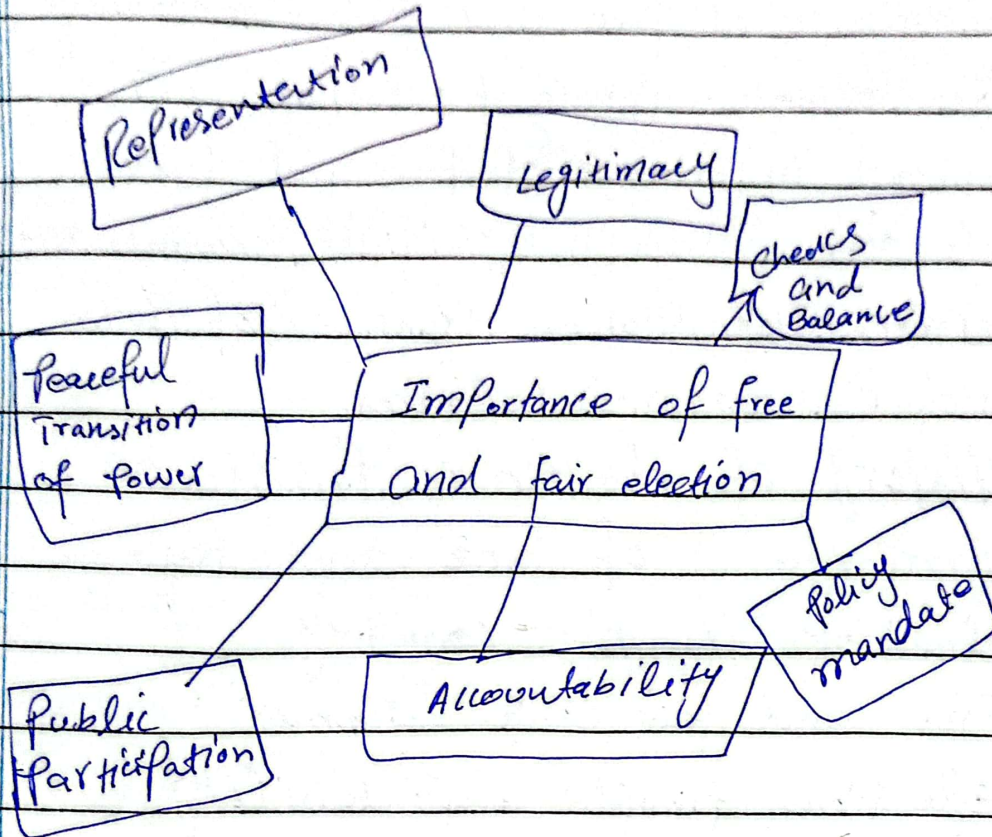 Representation
Legitimacy
Checks
and
Balance
Peaceful
Transition
of Power
Importance of free
and fair election
Policy
mandate
Accountability
Public
Participation